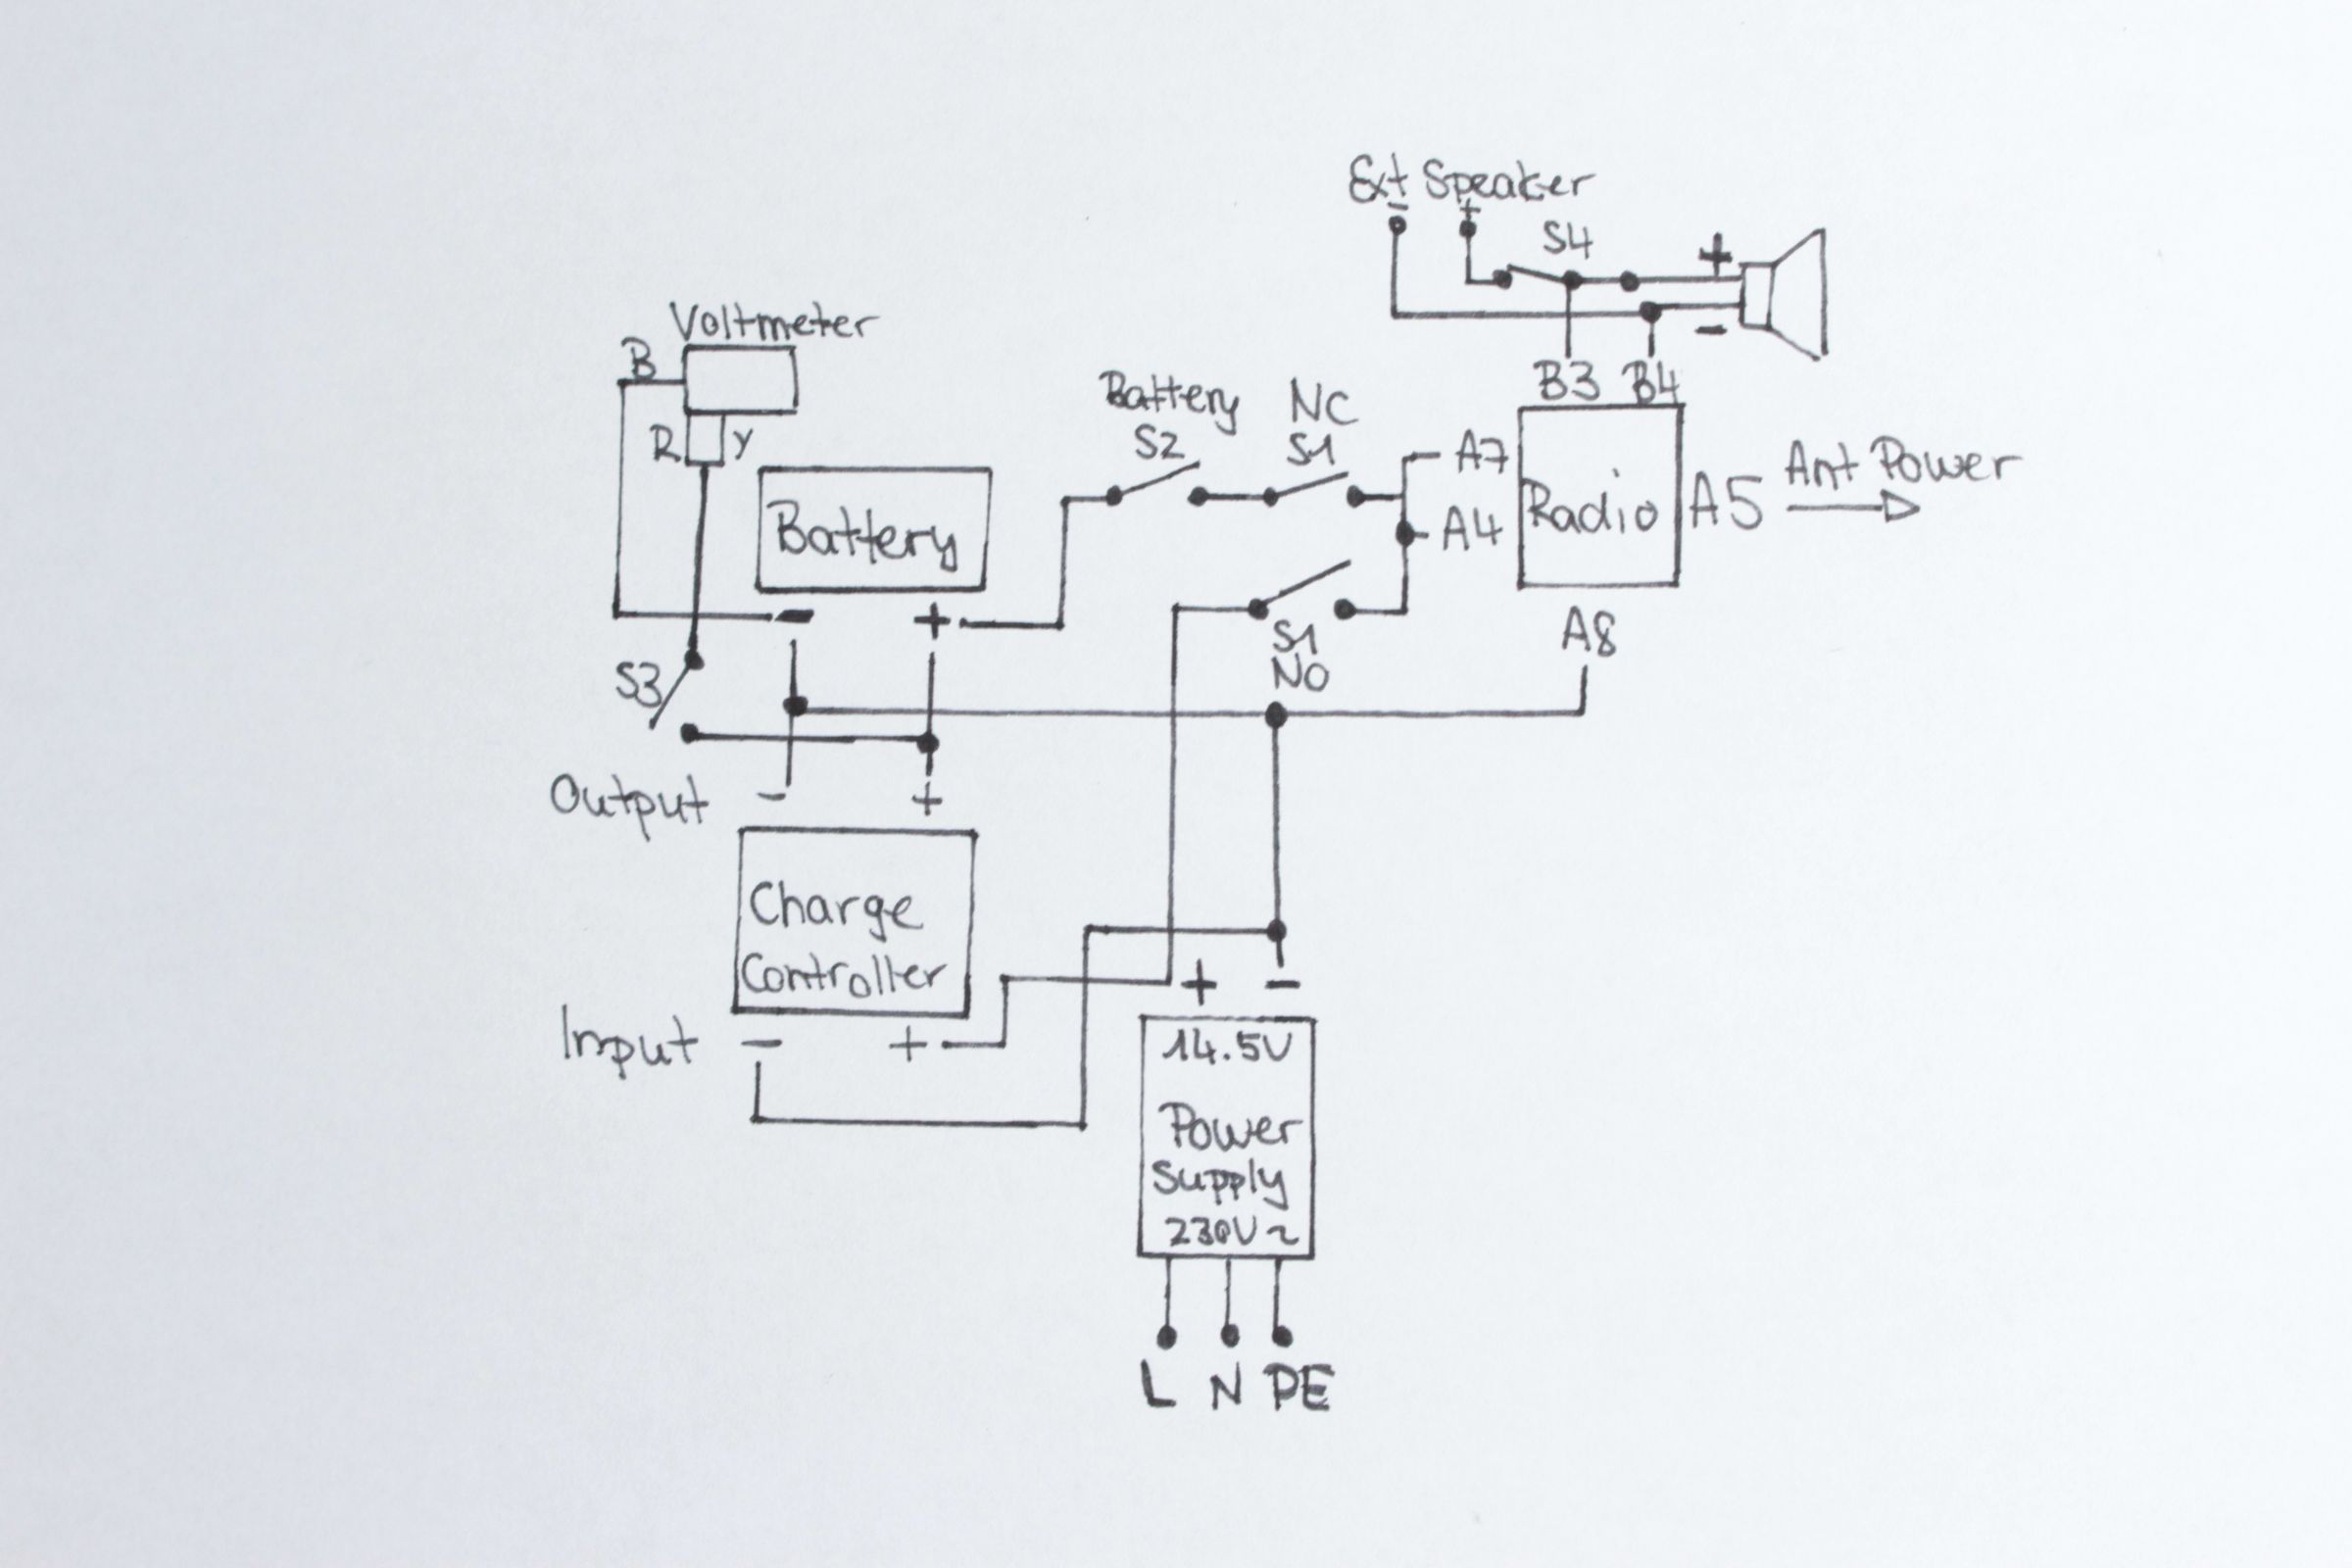 Ext Speaker
- +
S4
+
-
Voltmeter
B
R Y
B3 B4
Battery NC
S2 S1
A7
A4
Radio
A5
Ant Power
Battery
- +
S1
NO
A8
S3
Output - +
Charge
Controller
Input - +
+ -
14.5V
Power
Supply
230V~
L N PE